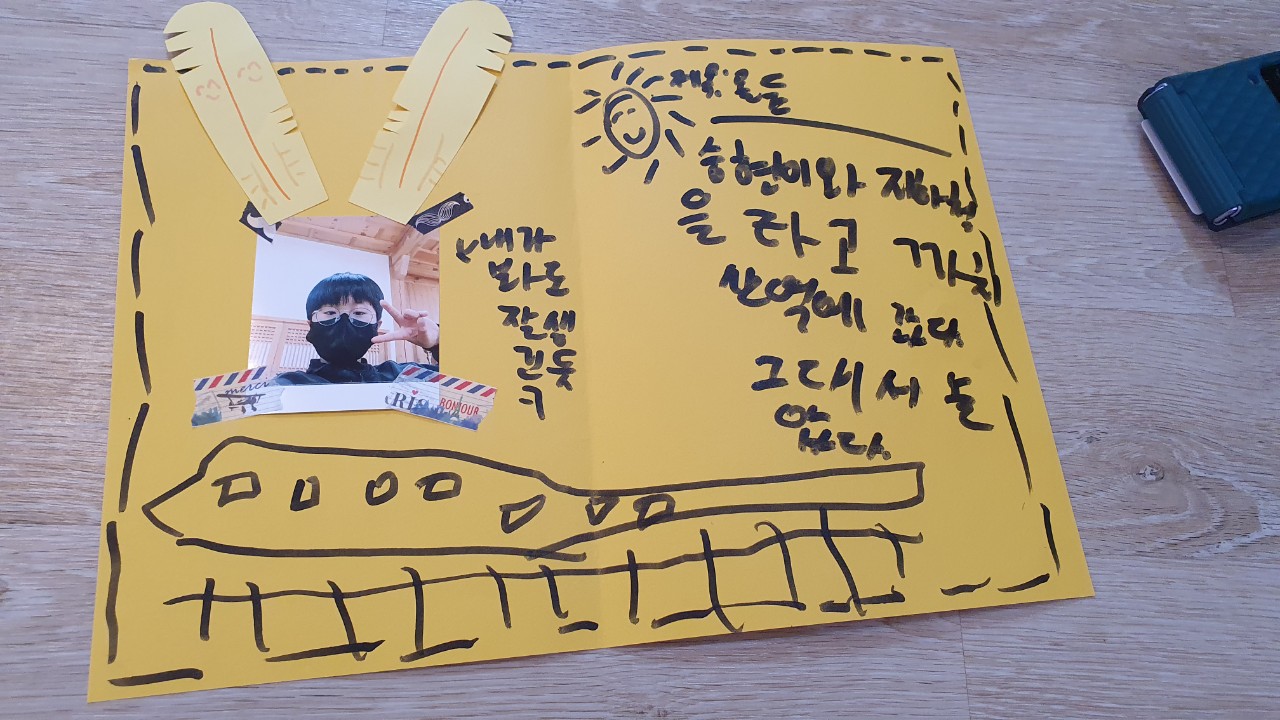 내가
봐도
잘생
긴듯
ㅋ
merci
Paris
BONJOUR
제목: 온들
승현이와 지하철
을 타고 까치
산역에 갔다
그대서 놀
았다.